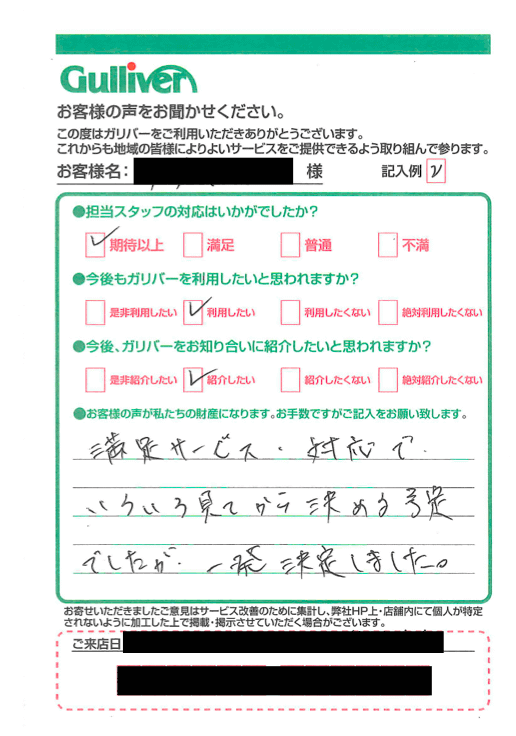 Gulliver
お客様の声をお聞かせください。
この度はガリバーをご利用いただきありがとうございます。
これからも地域の皆様によりよいサービスをご提供できるよう取り組んで参ります。
お客様名： 様 記入例 レ
●担当スタッフの対応はいかがでしたか？
期待以上 満足 普通 不満
●今後もガリバーを利用したいと思われますか？
是非利用したい 利用したい 利用したくない 絶対利用したくない
●今後、ガリバーをお知り合いに紹介したいと思われますか？
是非紹介したい 紹介したい 紹介したくない 絶対紹介したくない
●お客様の声が私たちの財産になります。お手数ですがご記入をお願い致します。
満足サービス・対応で
いろいろ見てから決める予定
でしたが、一発決定しました。
お寄せいただきましたご意見はサービス改善のために集計し、弊社HP上・店舗内にて個人が特定
されないように加工した上で掲載・掲示させていただく場合がございます。
ご来店日